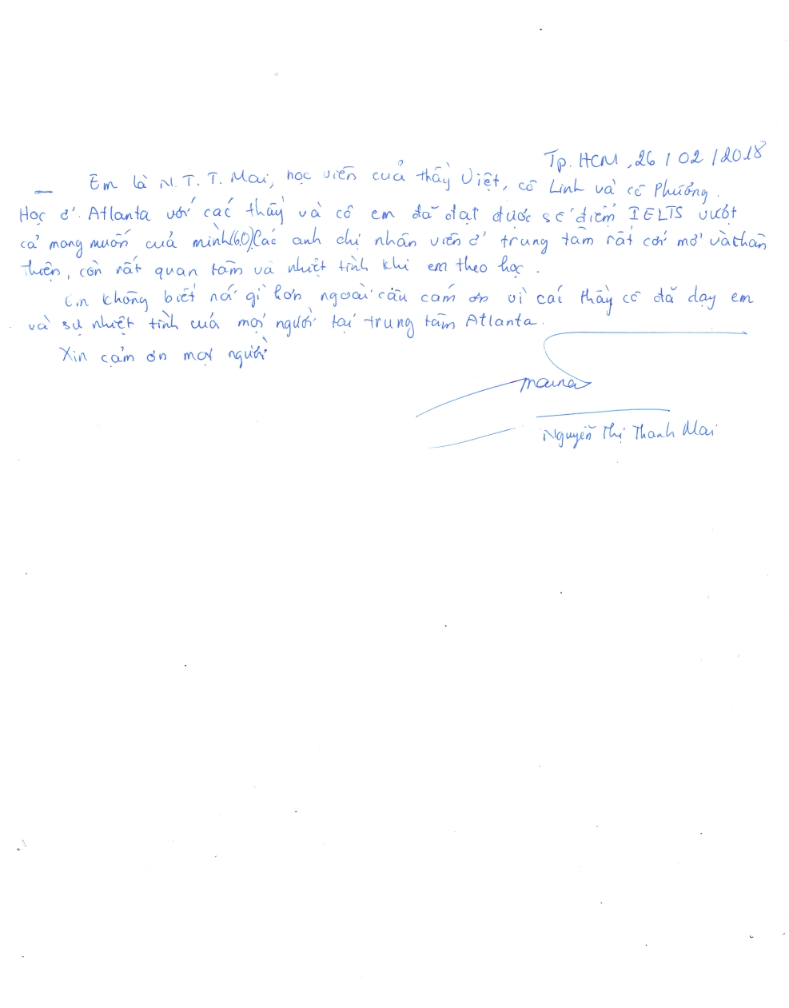 Tp. HCM, 26/02/2018
Em là N.T.T. Mai, học viên của thầy Việt, cô Linh và cô Phướng.
Học ở Atlanta với các thầy và cô em đã đạt được số điểm IELTS vượt
cả mong muốn của mình (6.0) Các anh chị nhân viên ở trung tâm rất cởi mở và thân
thiện, còn rất quan tâm và nhiệt tình khi em theo học.
Em không biết nói gì hơn ngoài câu cám ơn vì các thầy cô đã dạy em
và sự nhiệt tình của mọi người tại trung tâm Atlanta.
Xin cảm ơn mọi người
Nguyễn Thị Thanh Mai